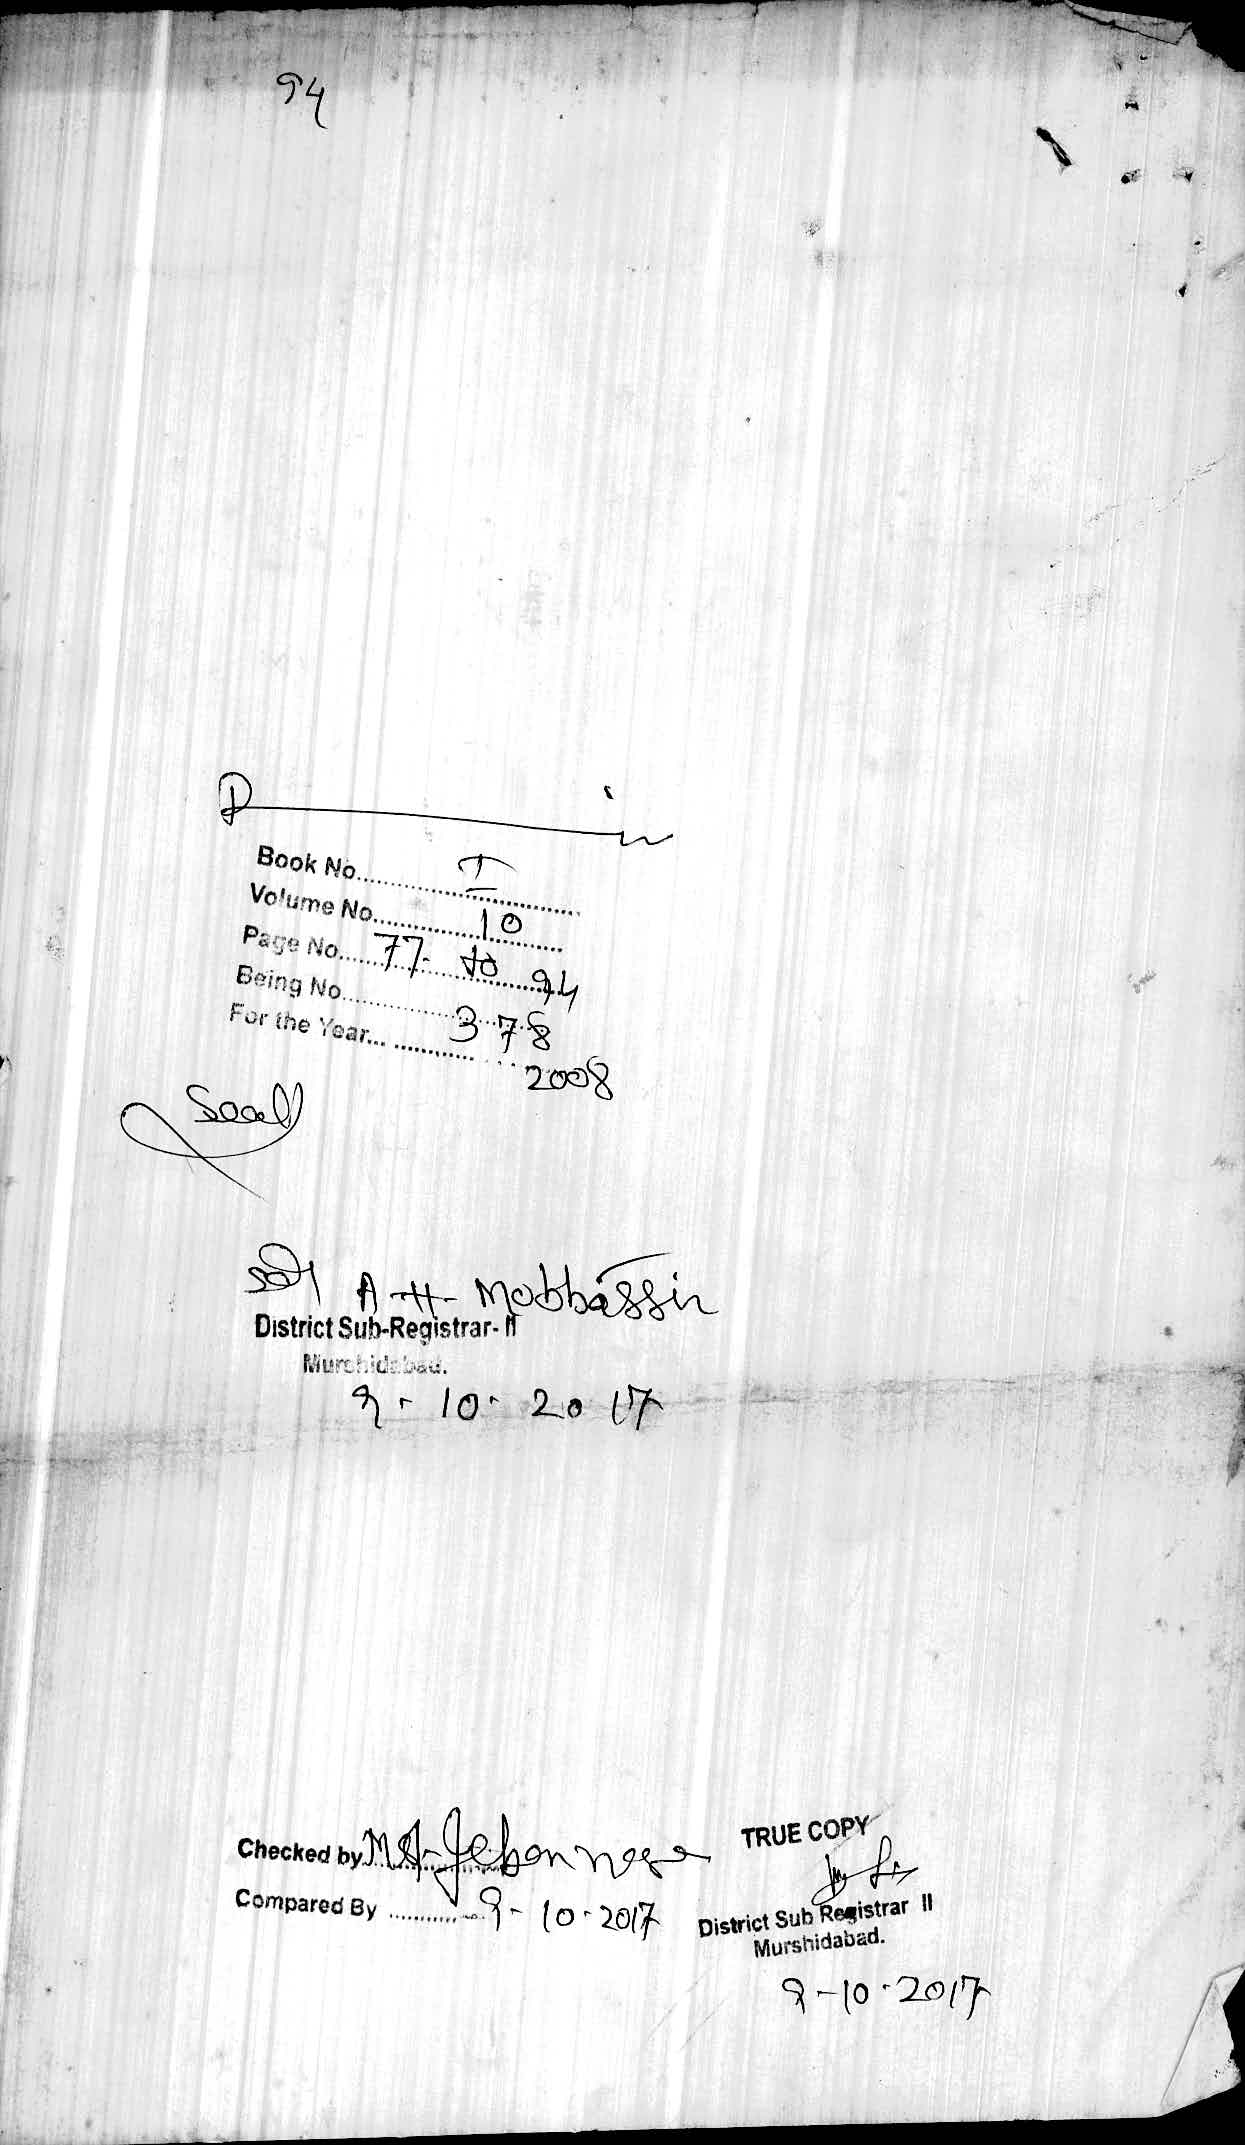 94
Book No. I
Volume No. 10
Page No. 77 to 94
Being No. 378
For the Year... 2008
Seal
Sd/ A. H. Mobbassir
District Sub-Registrar- II
Murshidabad.
9. 10. 2017
Checked by
Compared By 9-10-2017
TRUE COPY
District Sub Registrar II
Murshidabad.
9-10-2017